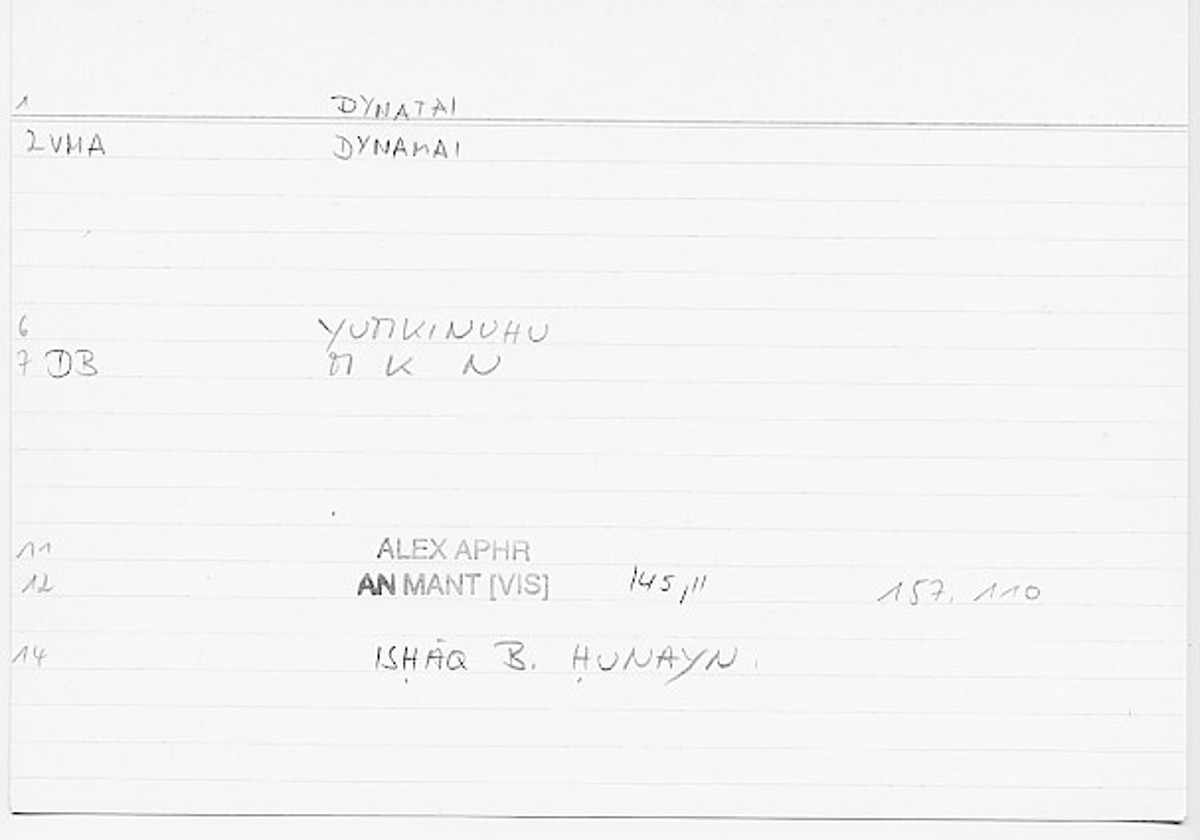 1 DYNATAI
2 VMA DYNAMAI
6 YUMKINUHU
7 DB M K N
11 ALEX APHR
12 AN MANT [VIS] 145,11 157, 110
14 ISḤĀQ B. ḤUNAYN.